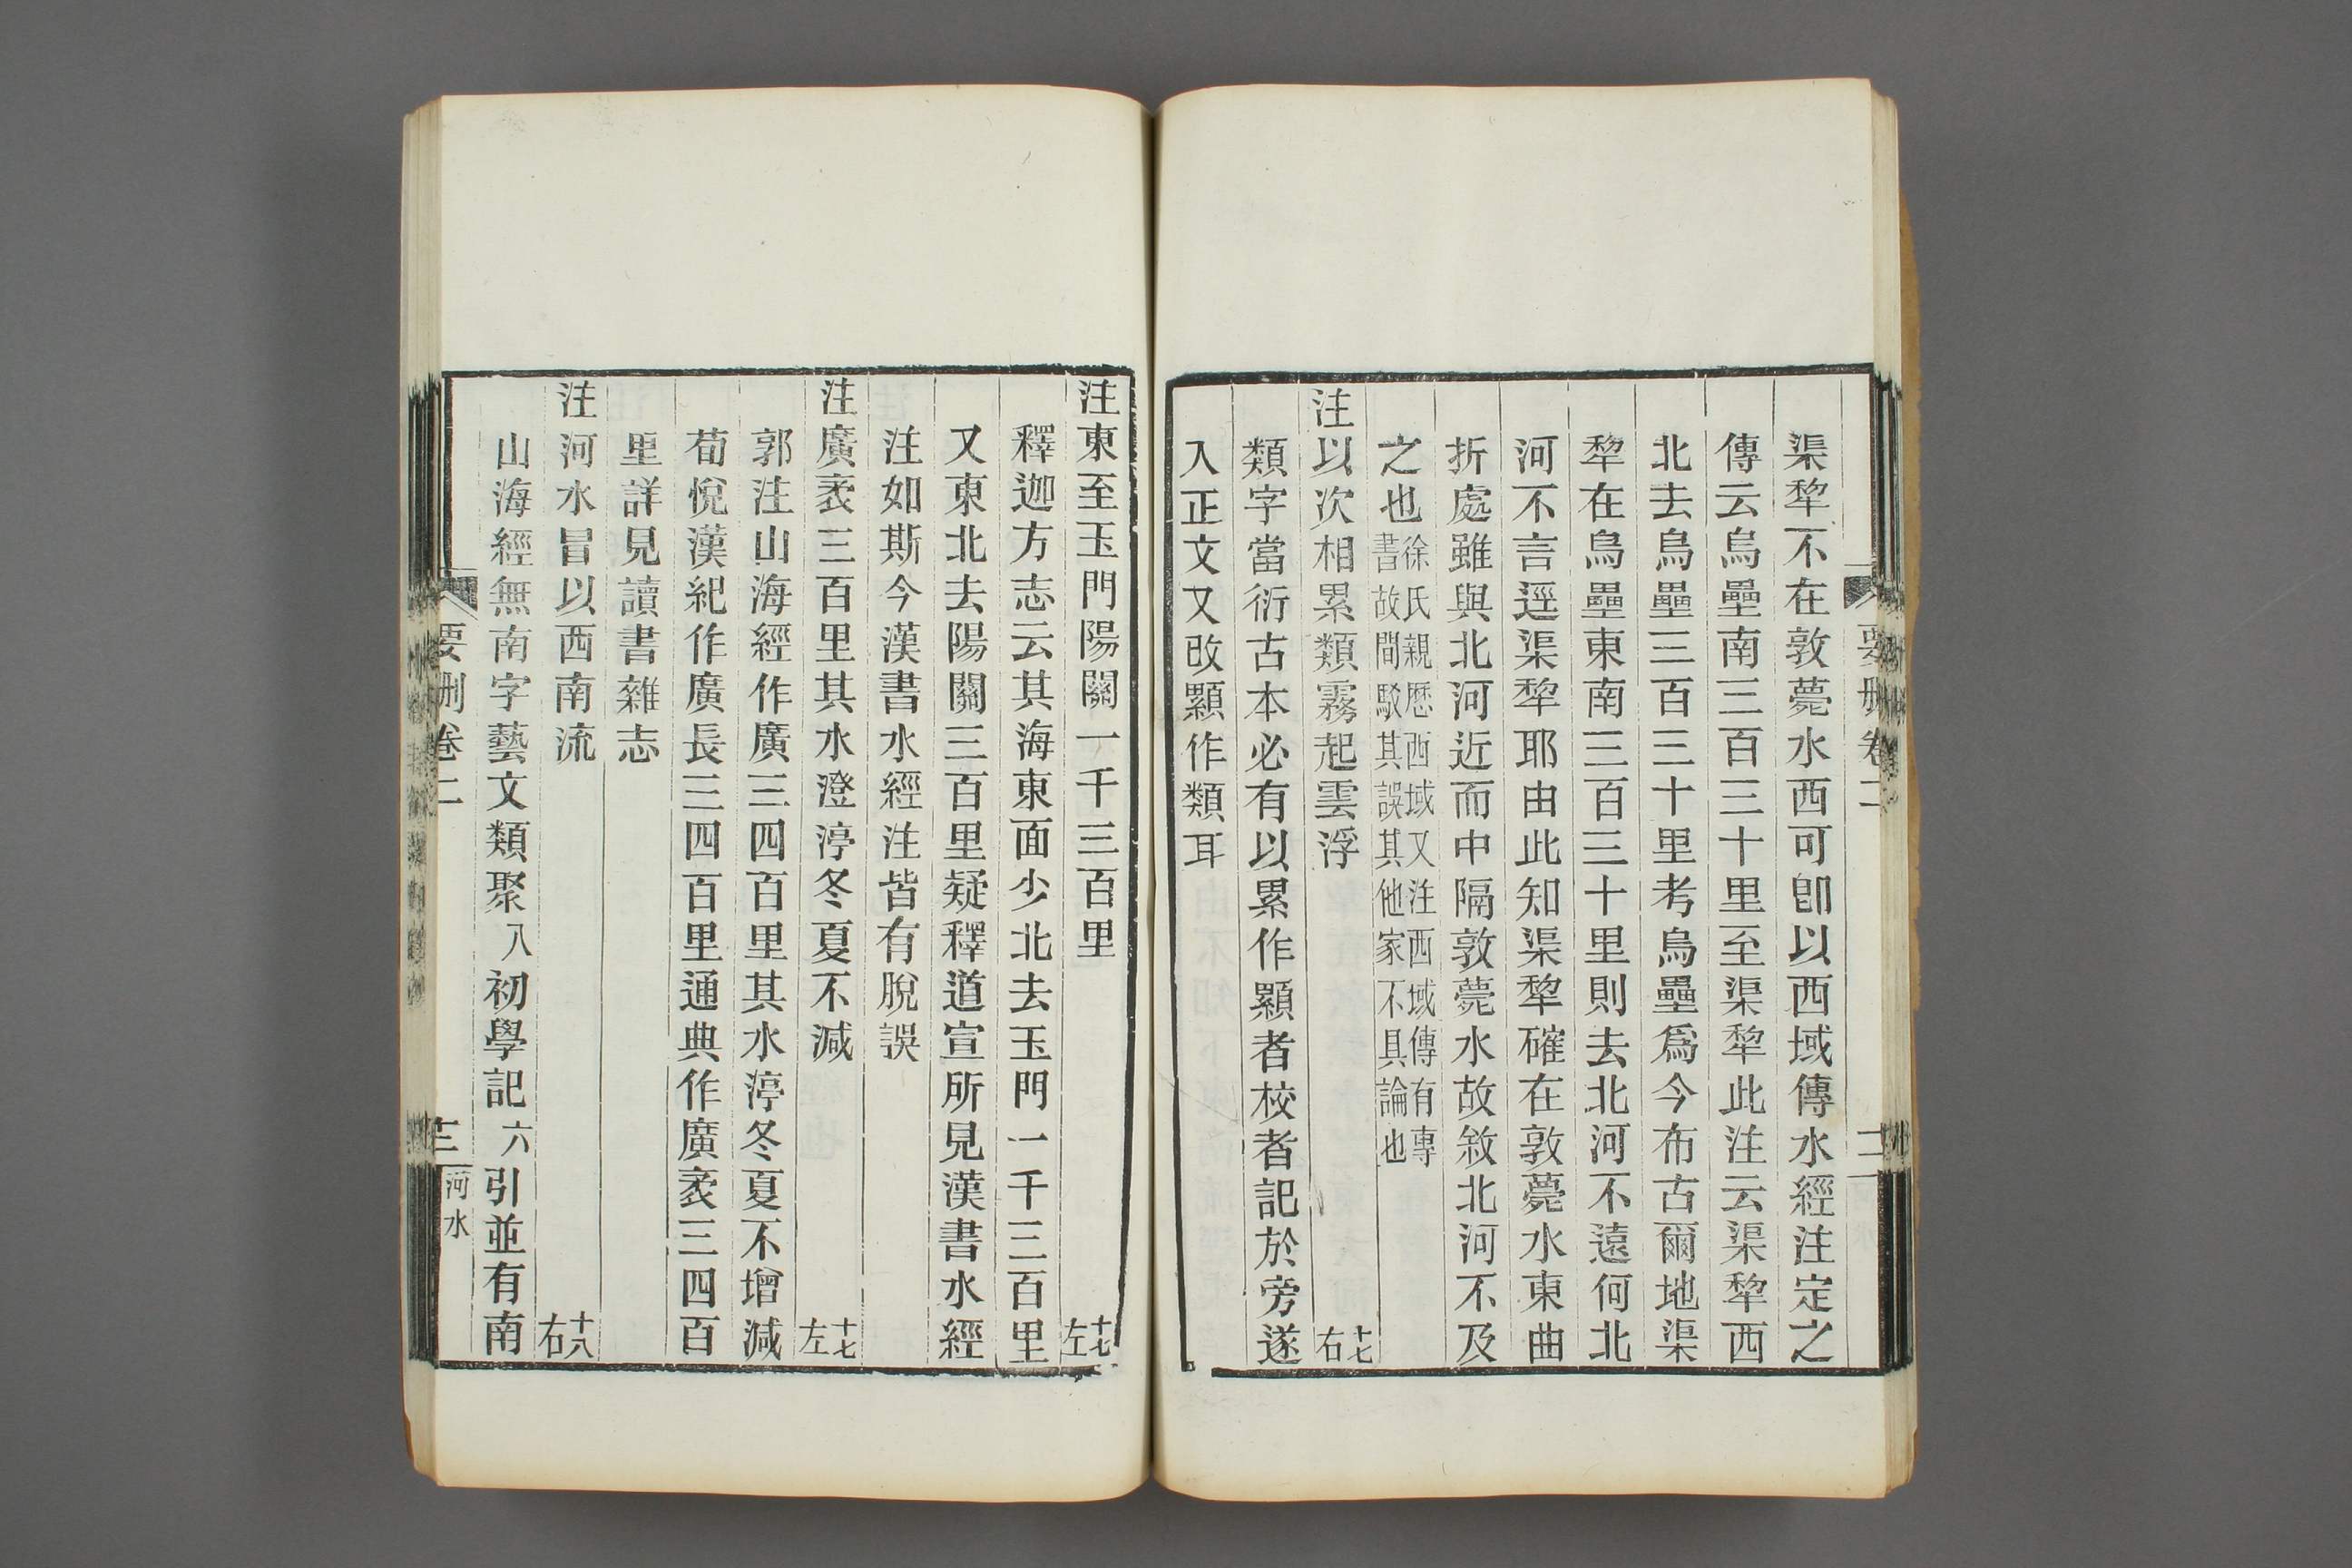 要刪卷二
二
渠犂不在敦薨水西可卽以西域傳水經注定之
傳云烏壘南三百三十里至渠犂此注云渠犂西
北去烏壘三百三十里考烏壘爲今布古爾地渠
犂在烏壘東南三百三十里則去北河不遠何北
河不言逕渠犂耶由此知渠犂確在敦薨水東曲
折處雖與北河近而中隔敦薨水故敘北河不及
之也徐氏親歷西域又注西域傳有專
書故間駁其誤其他家不具論也
注以次相累類霧起雲浮十七右
類字當衍古本必有以累作纇者校者記於旁遂
入正文又改纇作類耳
注東至玉門陽關一千三百里十七左
釋迦方志云其海東面少北去玉門一千三百里
又東北去陽關三百里疑釋道宣所見漢書水經
注如斯今漢書水經注皆有脫誤
注廣袤三百里其水澄渟冬夏不減十七左
郭注山海經作廣三四百里其水渟冬夏不增減
荀悅漢紀作廣長三四百里通典作廣袤三四百
里詳見讀書雜志
注河水冒以西南流十八右
山海經無南字藝文類聚八初學記六引並有南
要刪卷二
三
河水